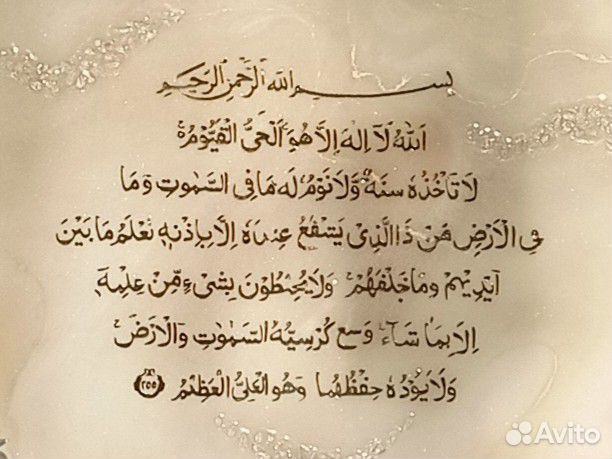 بسم الله الرحمن الرحيم
اَللهُ لَآ اِلٰهَ اِلَّا هُوَ اَلْحَيُّ الْقَيُّوْمُ
لَا تَاْخُذُهٗ سِنَةٌ وَّلَا نَوْمٌ لَهٗ مَا فِى السَّمٰوٰتِ وَمَا
فِى الْاَرْضِ مَنْ ذَا الَّذِىْ يَشْفَعُ عِنْدَهٗ اِلَّا بِاِذْنِهٖ يَعْلَمُ مَا بَيْنَ
اَيْدِيْهِمْ وَمَا خَلْفَهُمْ وَلَا يُحِيْطُوْنَ بِشَىْءٍ مِّنْ عِلْمِهٖ
اِلَّا بِمَا شَآءَ وَسِعَ كُرْسِيُّهُ السَّمٰوٰتِ وَالْاَرْضَ
وَلَا يَؤُدُهٗ حِفْظُهُمَا وَهُوَ الْعَلِىُّ الْعَظِيْمُ ٢٥٥
Avito